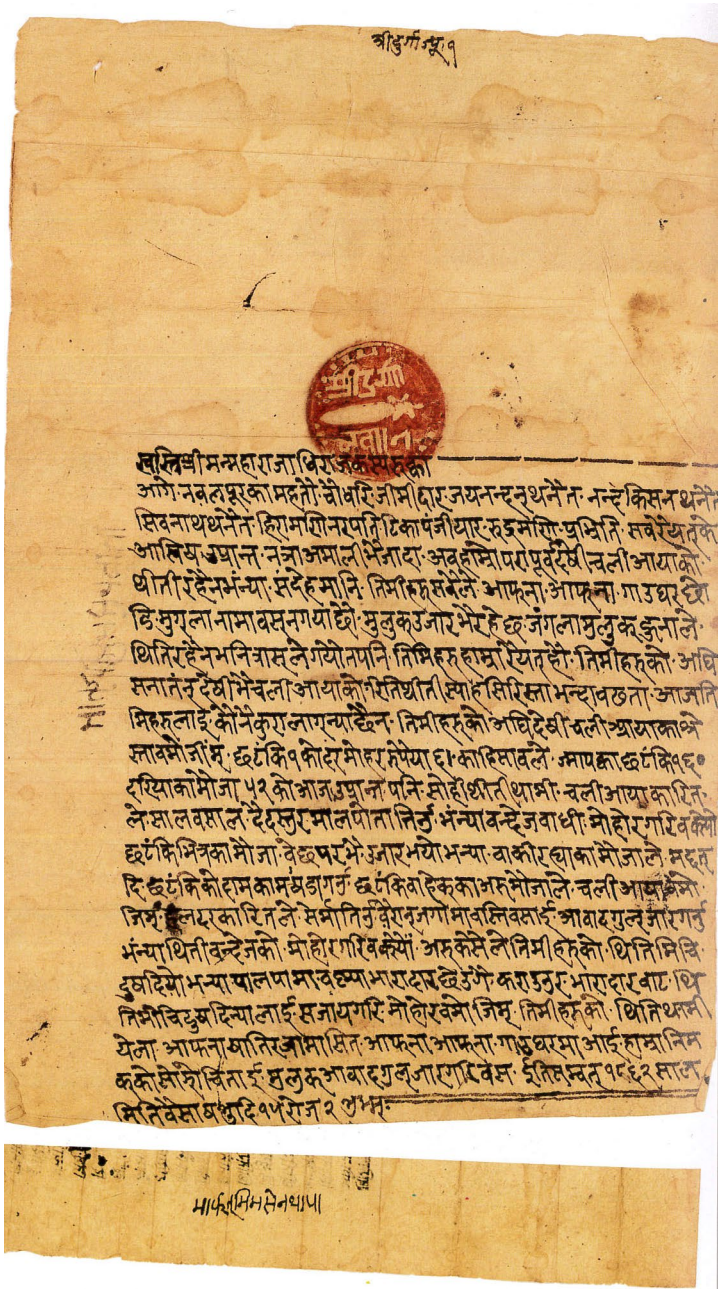 श्रीदुर्गाज्यू १
श्रीदुर्गा
भवानि
स्वस्तिश्रीमन्महाराजाधिराजकस्य रुक्का
आगे नवलपूरका महतौ चौधरि जीमीदार जयनन्दन् थनैत नन्दकिसन थनैत
सिवनाथ थनैत हिरामणि नरपति टिका पंजीयार रुद्रमणि प्रभ्रिति सवै रैयत्के
आसिष उप्रान्त नञा अमाली भैजादा अवहाम्रा परापूर्वदेषी चली आयाको
थीती रहैन भंन्या संदेह मानि तिमीहरु सवैले आफना आफना गाउघर छो
डि मुगलानामा वसन गया छौ मुलुक उजार भैरहेछ जंगला मुलुक हुनाले
थिति रहैन भनि त्रासले गयौ न पनि तिमिहरु हाम्रा रैयत् हौ तिमीहरुको अघि
सनातन् देषी भै चली आयाको रितिथीती स्याहे सिरिस्ता भन्दा वढता आज ति
मिहरुलाई कोनै कुरा लागन्या छैन तिमीहरुको अघि देषी चली आयाका श्रे
स्ता वमोजीम् छटंकि १ को दरमोहरु रुपैया ६। का हिसावले ज्मापका छटंकि १६०
दरियाका मौजा ५२ को आज उप्रान्त पनि सोही थीती थामी चली आयाका रित
ले सालवसाल दैदस्तुर मालपोत तिर्नु भंन्या वन्देज वाधी मोहोर गरिवकस्यौ
छटंकि भित्रका मौजा वेछपर भै उजार भयो भन्या वाकी रह्याका मौजाले मद्दत्
दि छटंकिको हामकाम षडा गर्नु छटंकि वाहेकका अरु मौजाले चली आया वमो
जिम् दरकारितले सेर्मा तिर्नु वैरान् जगामा वस्ति वसाई आवाद गुल्जार गर्नु
भंन्या थिती वन्देजको मोहोर गरिवकस्यौं अरु कसैले तिमीहरुको थिति मिचि
दुष दियो भन्या पाल्पामा वस्या भारादार छेउ गै कराउनु र भारादारवाट थि
ति मिचि दुष दिन्यालाई सजाय गरि मोहोर वमोजिम् तिमीहरुको थिति थामी
देला आफना षातिर्जामासित आफना आफना गाउघरमा आई हाम्रा निम
कको सोझो चिताई मुलुक आवाद गुल्जार गरि वस ईति सम्वत् १८६२ साल
मिति वैसाष शुदि १५ रोज २ शुभम्
मार्फत् भिमसेन थापा